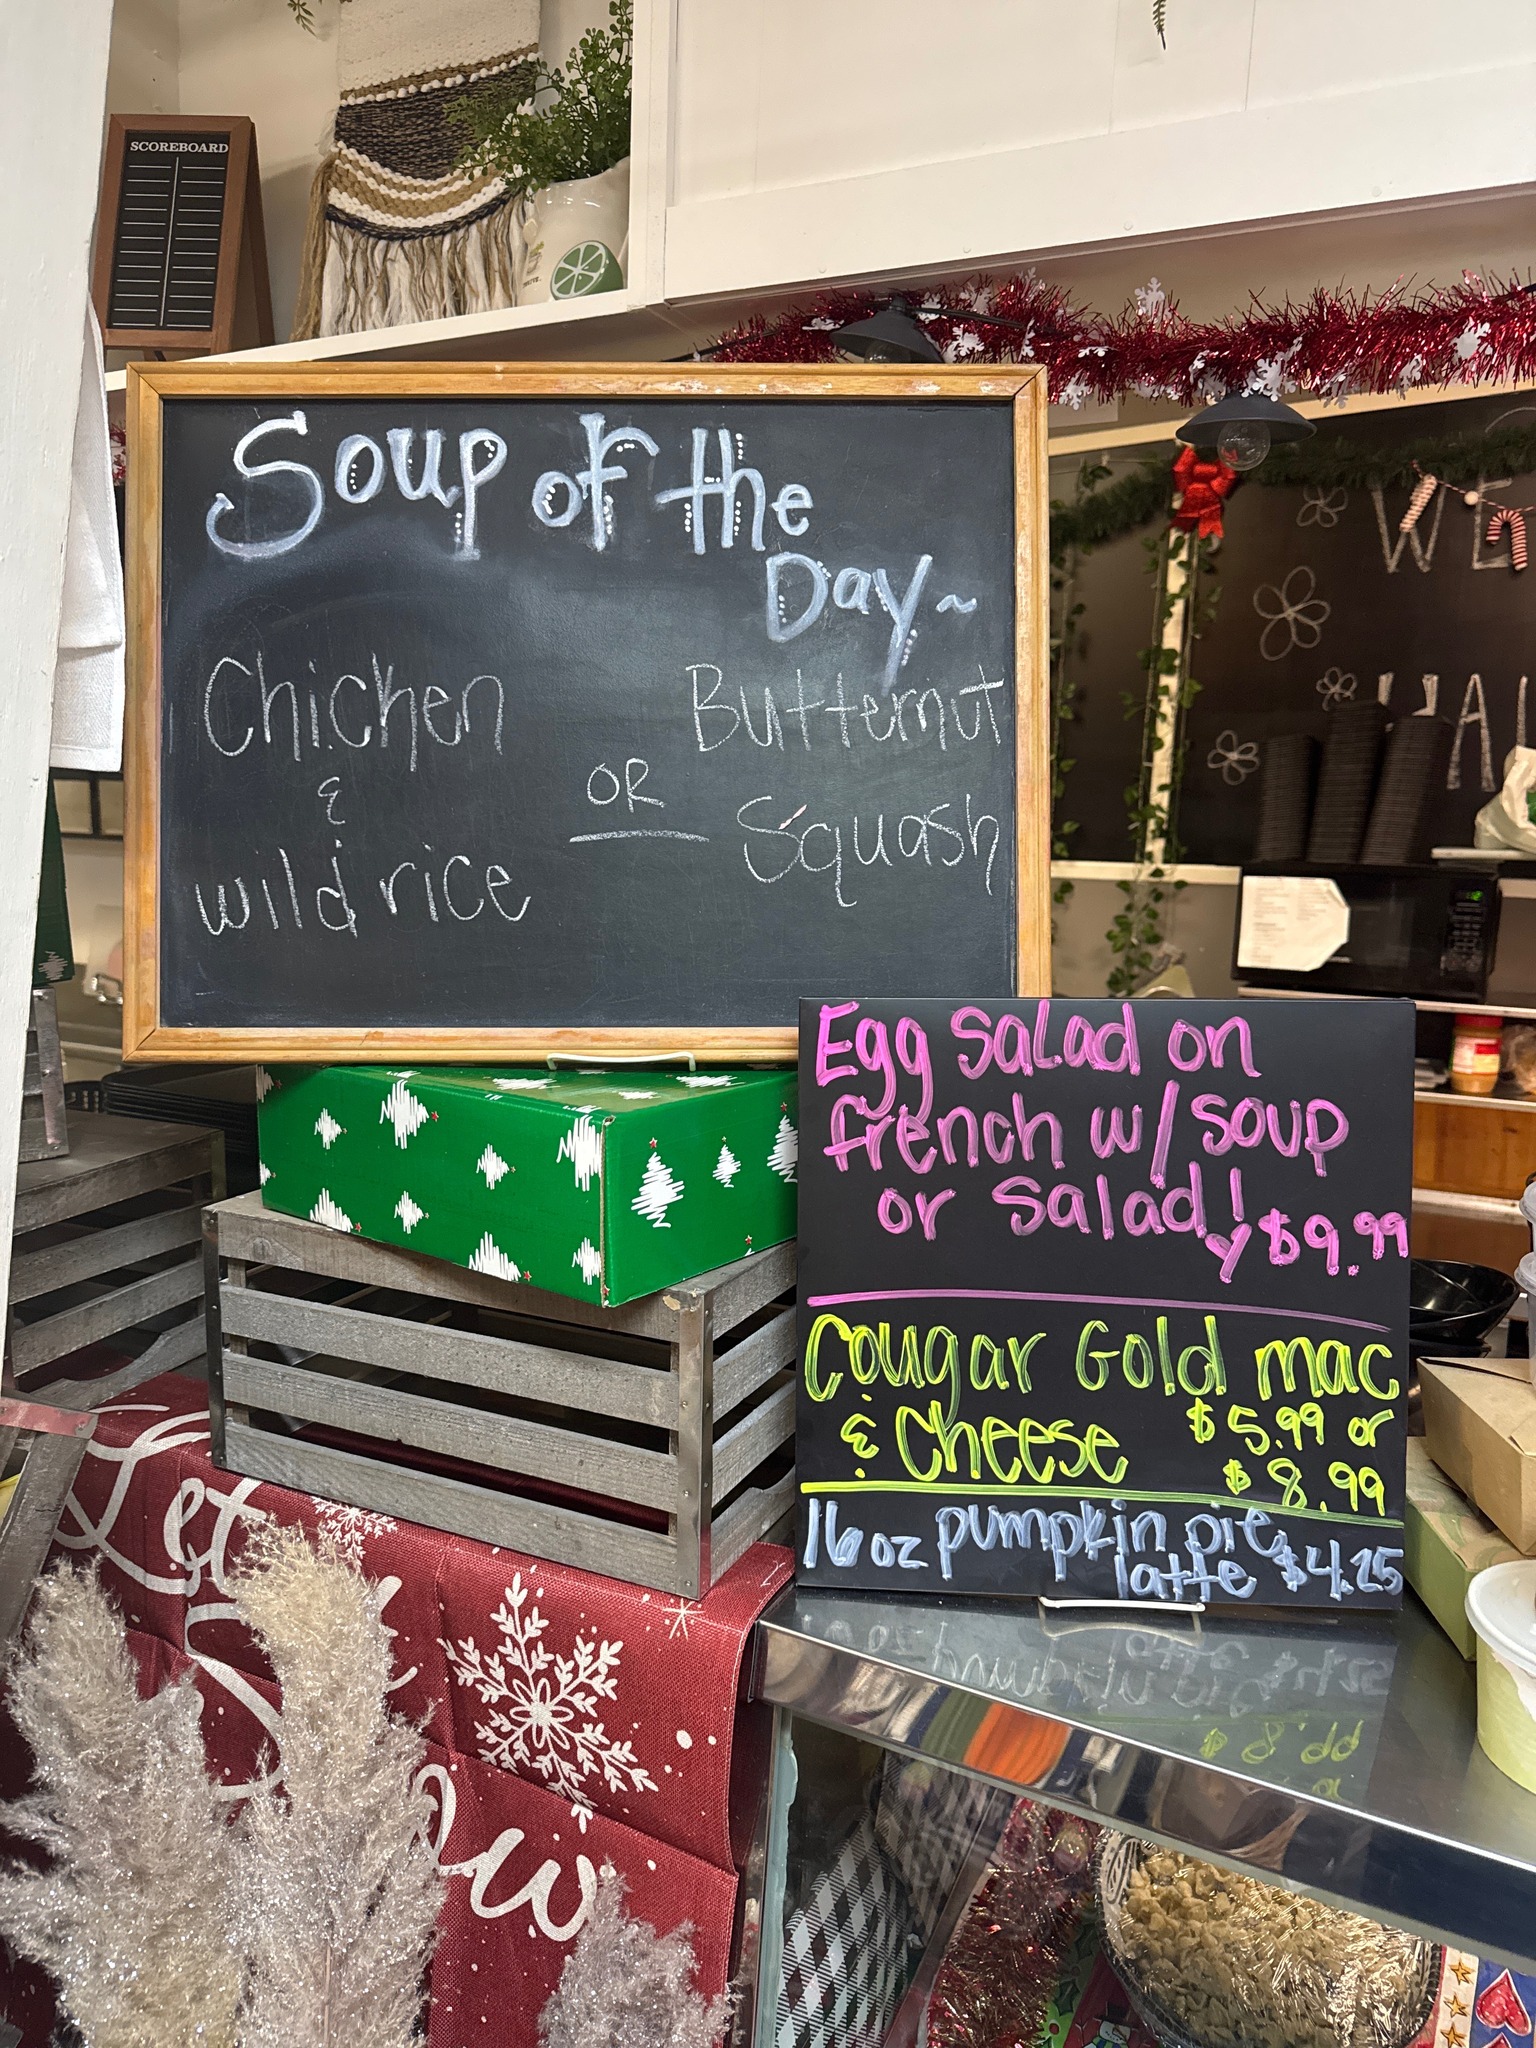 SCOREBOARD
Soup of the
Day~
Chicken
&
wild rice
OR
Butternut
Squash
WE
Egg salad on
french w/ soup
or salad! $9.99
Cougar Gold mac
& Cheese $5.99 or
$8.99
16 oz pumpkin pie
latte $4.25
Let
Snow